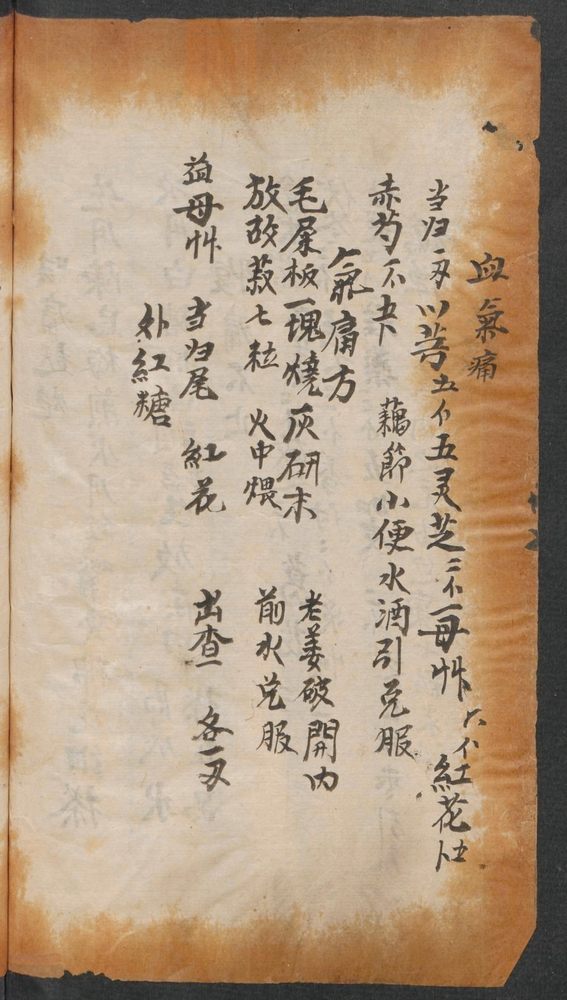 血氣痛
当归一刄 川芎五个 五灵芝三个 一母艸六个 紅花
赤芍不 藕節 小便水酒引兑服
氣痛方
毛屎板一塊燒灰研末 老姜破開內
放故菽七粒 火中煨 前水兑服
益母艸 当归尾 紅花 出查 各一刄
外紅糖